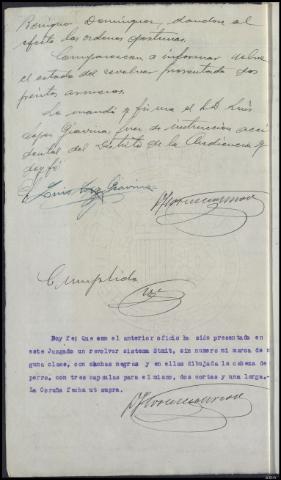 Benigno Dominguez, dandose al
efecto las ordenes oportunas.
Comparezcan a informar sobre
el estado del revolver presentado dos
peritos armeros.
Lo mandó y firma el Sr. Don Luis
Gravina, Juez de instrucción acci
dental del Distrito de la Audiencia y
doy fé
Luis Gravina
Cumplido
Doy fe: Que con el anterior oficio ha sido presentado en
este Juzgado un revolver sistema Smit, sin numero ni marca de n
guna clase, con cachas negras y en ellas dibujada la cabeza de
perro, con tres capsulas para el mismo, dos cortas y una larga.-
La Coruña fecha ut supra.